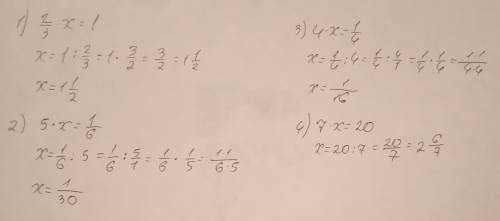 1) 2/3 · x = 1
x = 1 : 2/3 = 1 · 3/2 = 3/2 = 1 1/2
x = 1 1/2
2) 5 · x = 1/6
x = 1/6 : 5 = 1/6 : 5/1 = 1/6 · 1/5 = 1·1/6·5
x = 1/30
3) 4 · x = 1/4
x = 1/4 : 4 = 1/4 : 4/1 = 1/4 · 1/4 = 1·1/4·4
x = 1/16
4) 7 · x = 20
x = 20 : 7 = 20/7 = 2 6/7